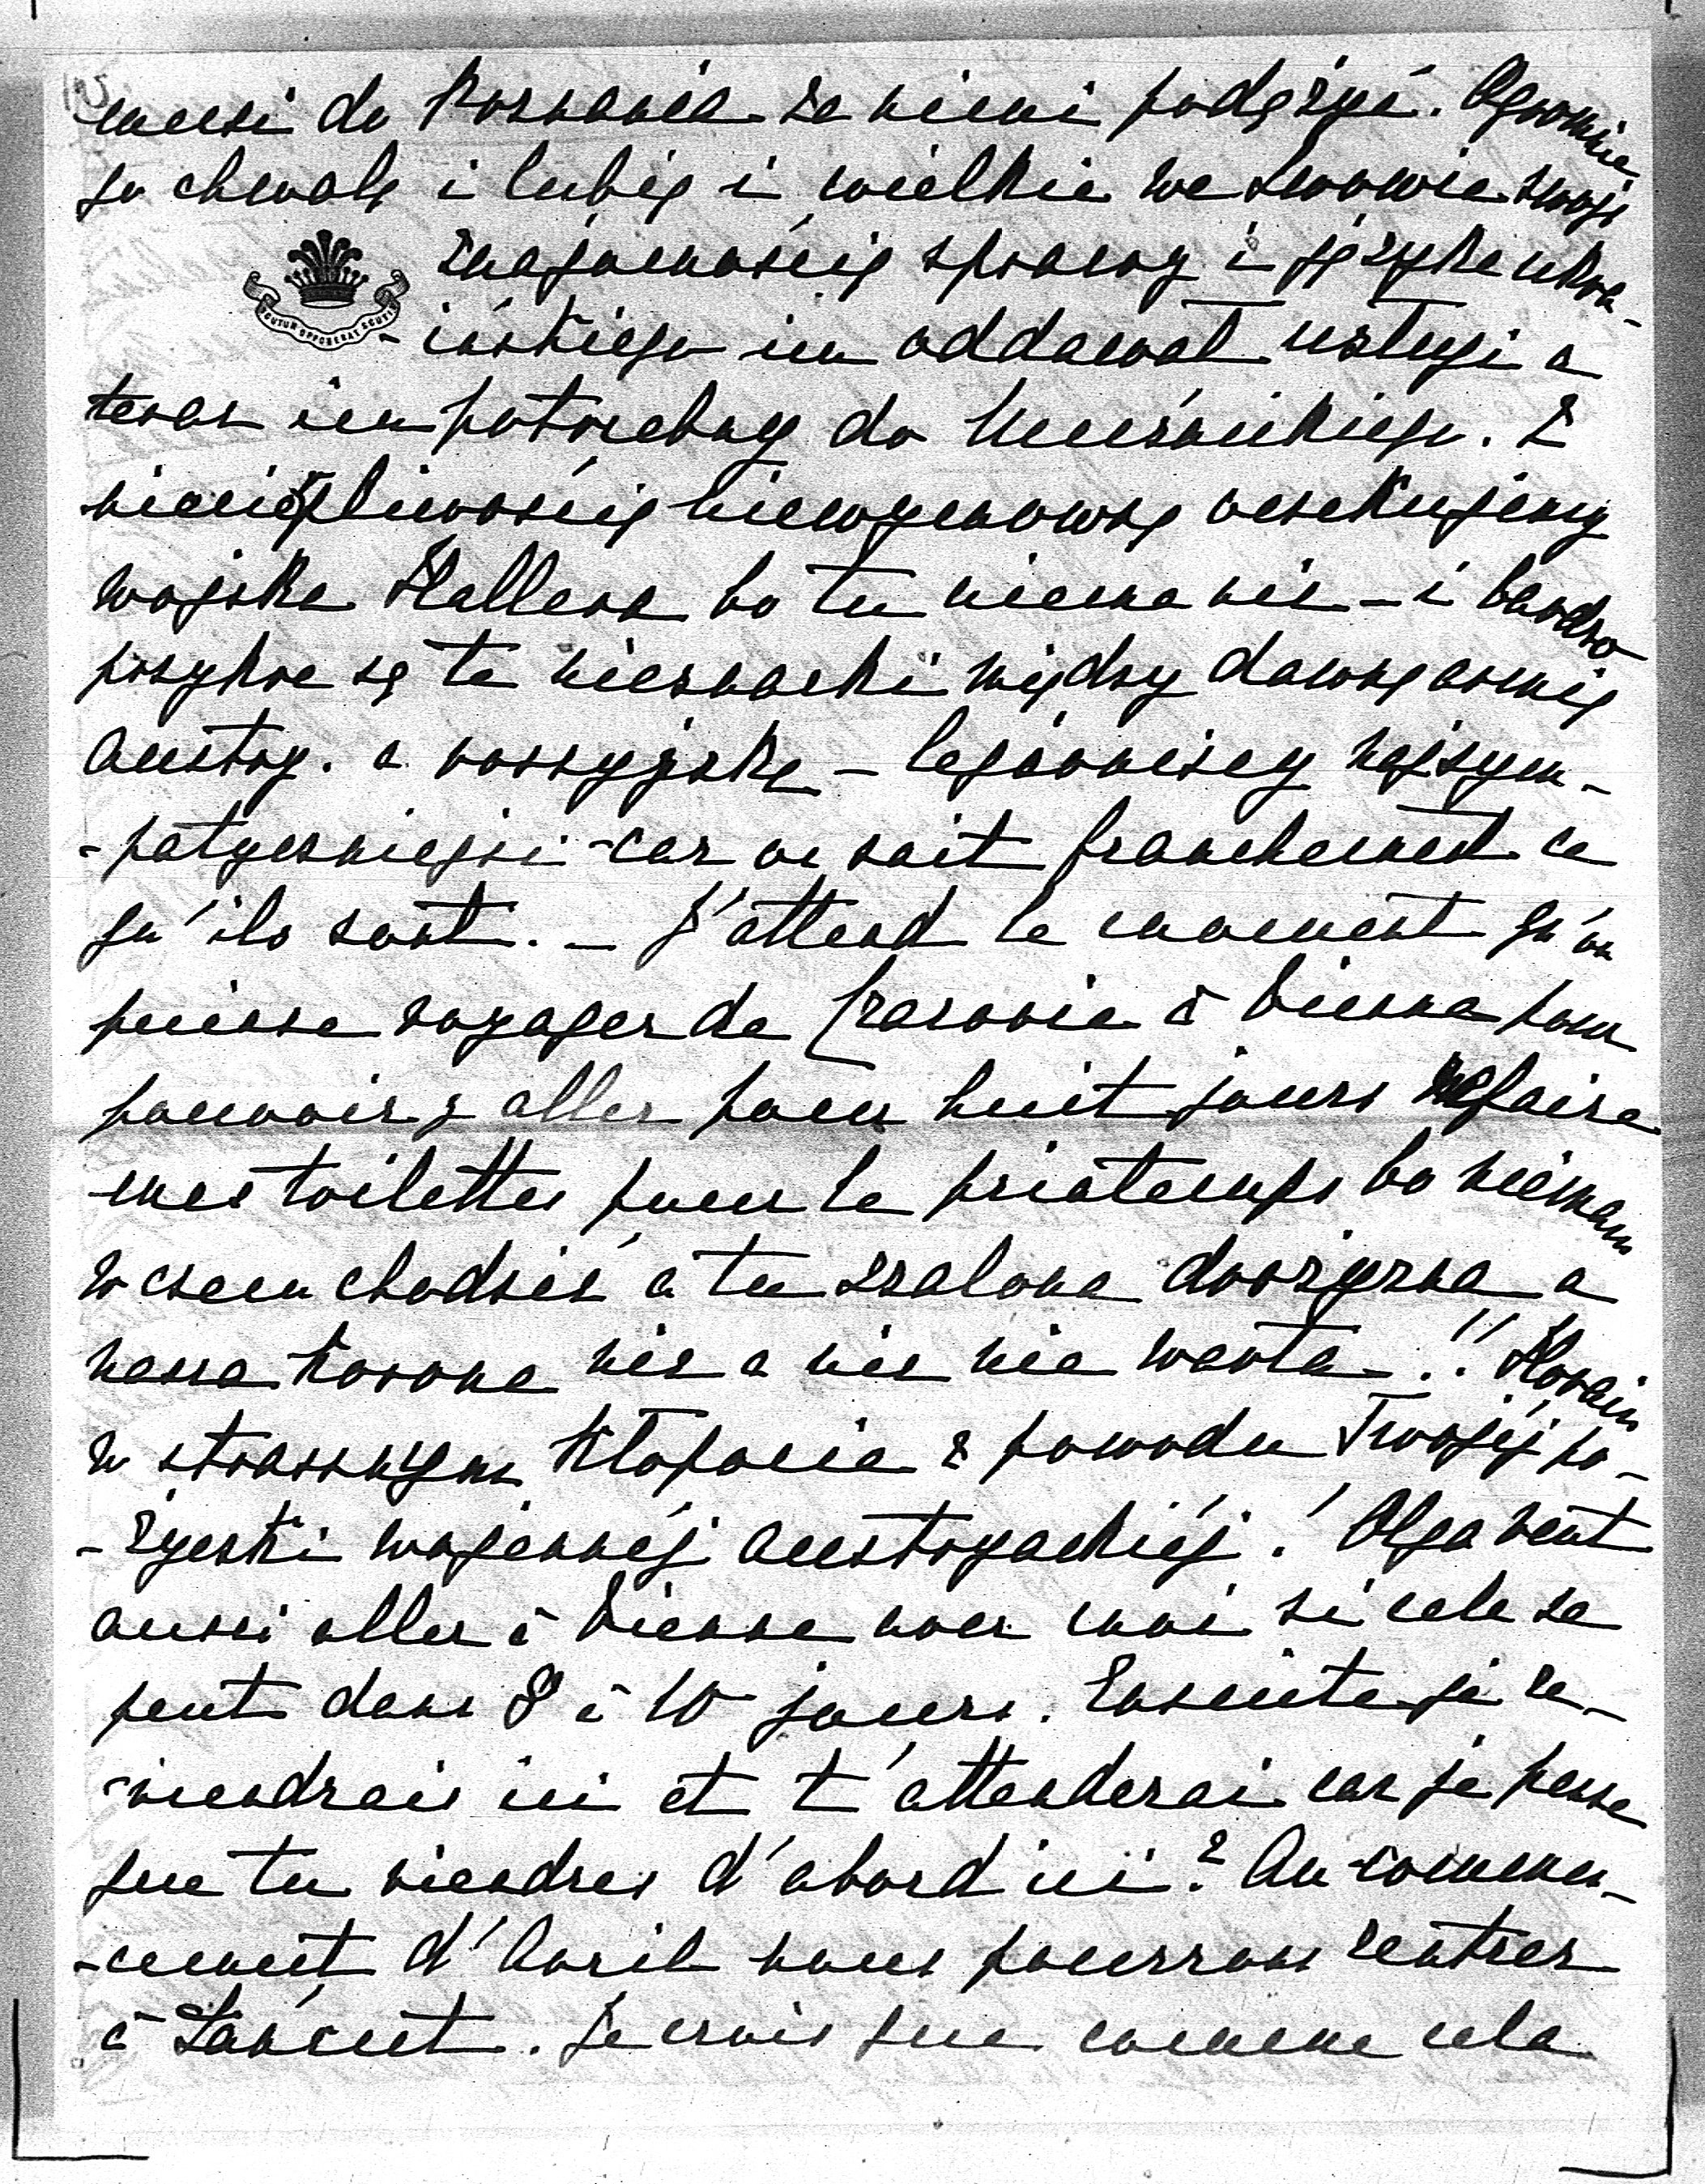 musi do Poznania za niemi podążyć. Ogromnie
go chwalę i lubię i wielkie we Lwowie swoją
znajomością sprawy i języka ukra-
-ińskiego im oddawał usługi a
teraz im potrzebny do Muśnickiego. Z
niecierpliwością niewymowną oczekujemy
wojska Hallera bo tu niema nic – i bardzo
przykre są te niesnaski między dawną armią
austry. a rossyjską – legioniscy najsym-
-patyczniejsi – car on sait franchement ce
qu'ils sont. – J'attend le moment qu'on
puisse voyager de Cracovie à Vienne pour
pouvoir y aller pour huit jours refaire
mes toilettes pour le printemps bo niemam
w czem chodzić a tu szalona drożyzna a
nasza Korona nic a nic nie warta –!!
w strasznym kłopocie z powodu Twojéj po-
-życzki wojennéj austryackiéj! Olga veut
aussi aller à Vienne avec moi si cela se
peut dans 8 à 10 jours. Ensuite je re-
-viendrais ici et t'attenderai car je pense
que tu viendras d'abord ici? Au commen-
-cement d'Avril nous pourrons rentrer
à Łańcut. Je crois que comme cela